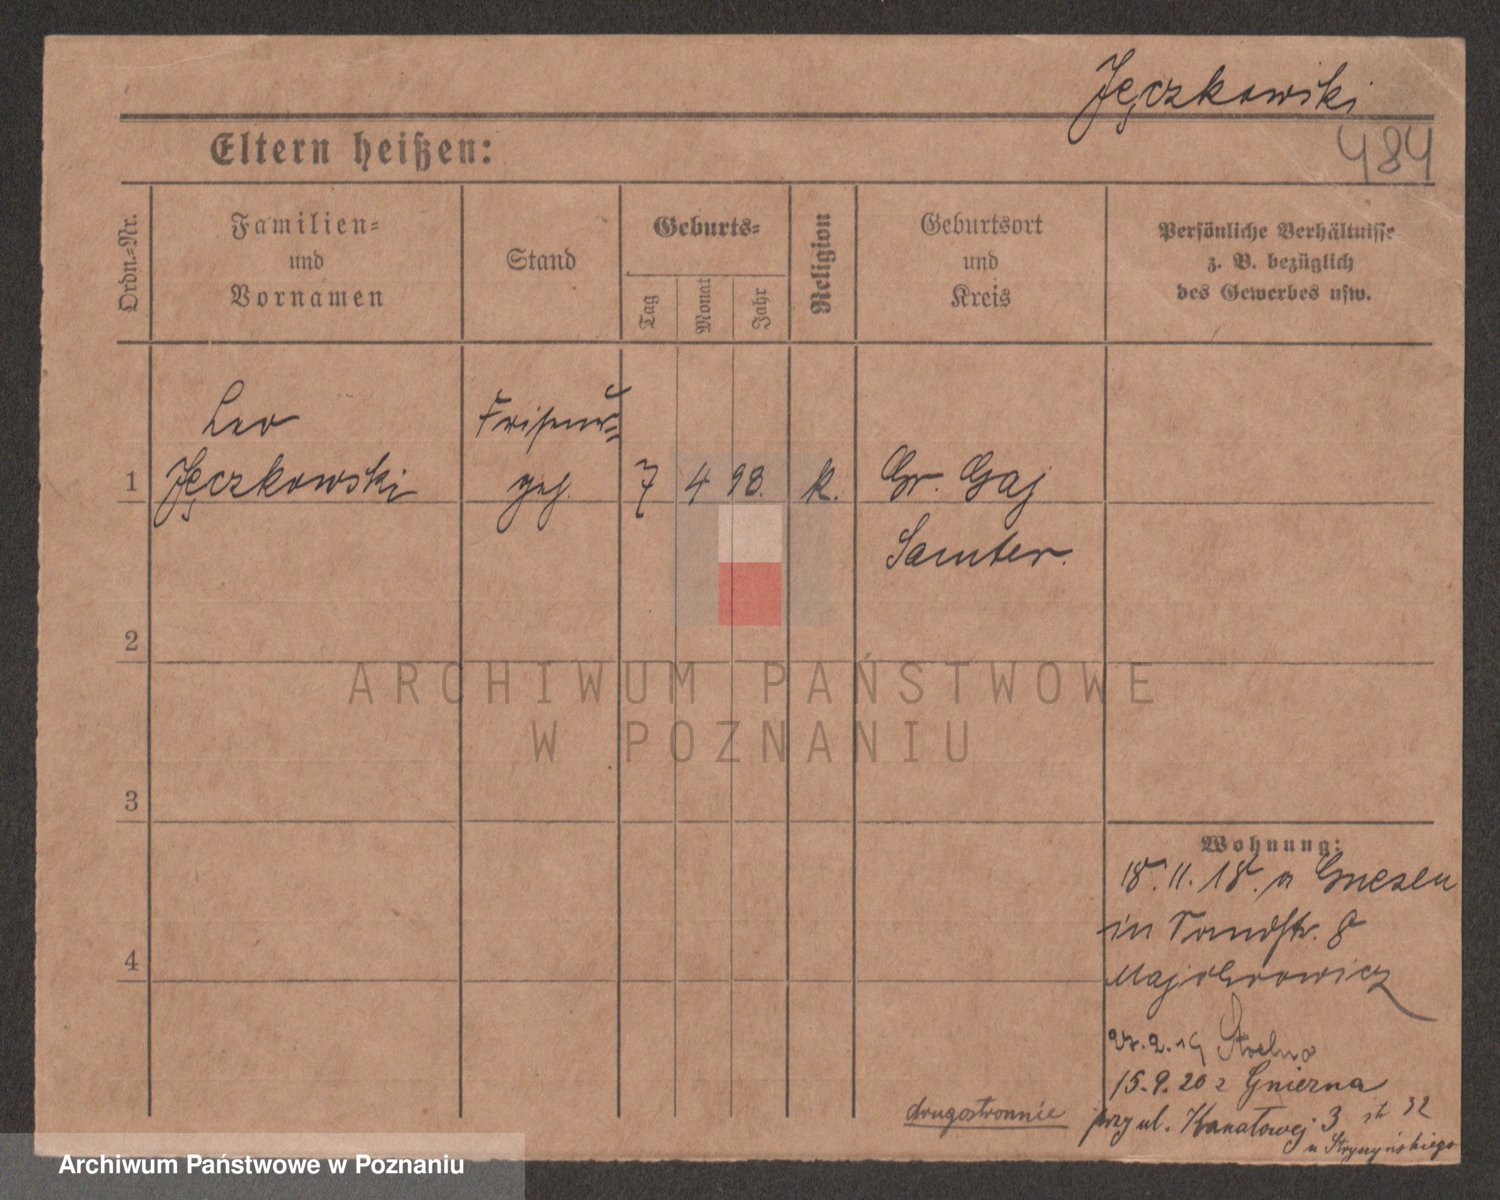 Jęczkowiski
484
Eltern heißen:
Ordn.=Nr.
Familien=
und
Vornamen
Stand
Geburts=
Tag
Monat
Jahr
Religion
Geburtsort
und
Kreis
Persönliche Verhältnisse
z. B. bezüglich
des Gewerbes usw.
Leo
Friseur=
1
Jęczkowski
geh.
7
4
98.
k.
Gr. Gaj
Samter.
2
ARCHIWUM PAŃSTWOWE
W POZNANIU
3
Wohnung:
18. 11. 18. n Gnesen
in Sandstr. 8
Majchrowicz
4
27. 2. 19 Strelno
15. 9. 20 z Gniezna
drugostronnie
przy ul. Kanałowej 3
u Stryczyńskiego
Archiwum Państwowe w Poznaniu